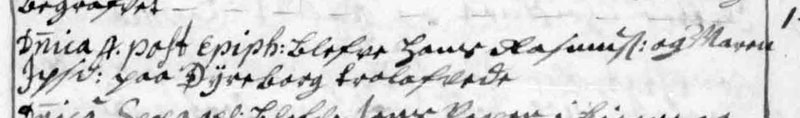 begrafvet
Dnica 4. post Epiph: blefve Hans Rasmuss: og Maren
Ipsd: paa Dÿreborg trolofvede
Dnica Sexages: blefve Hans